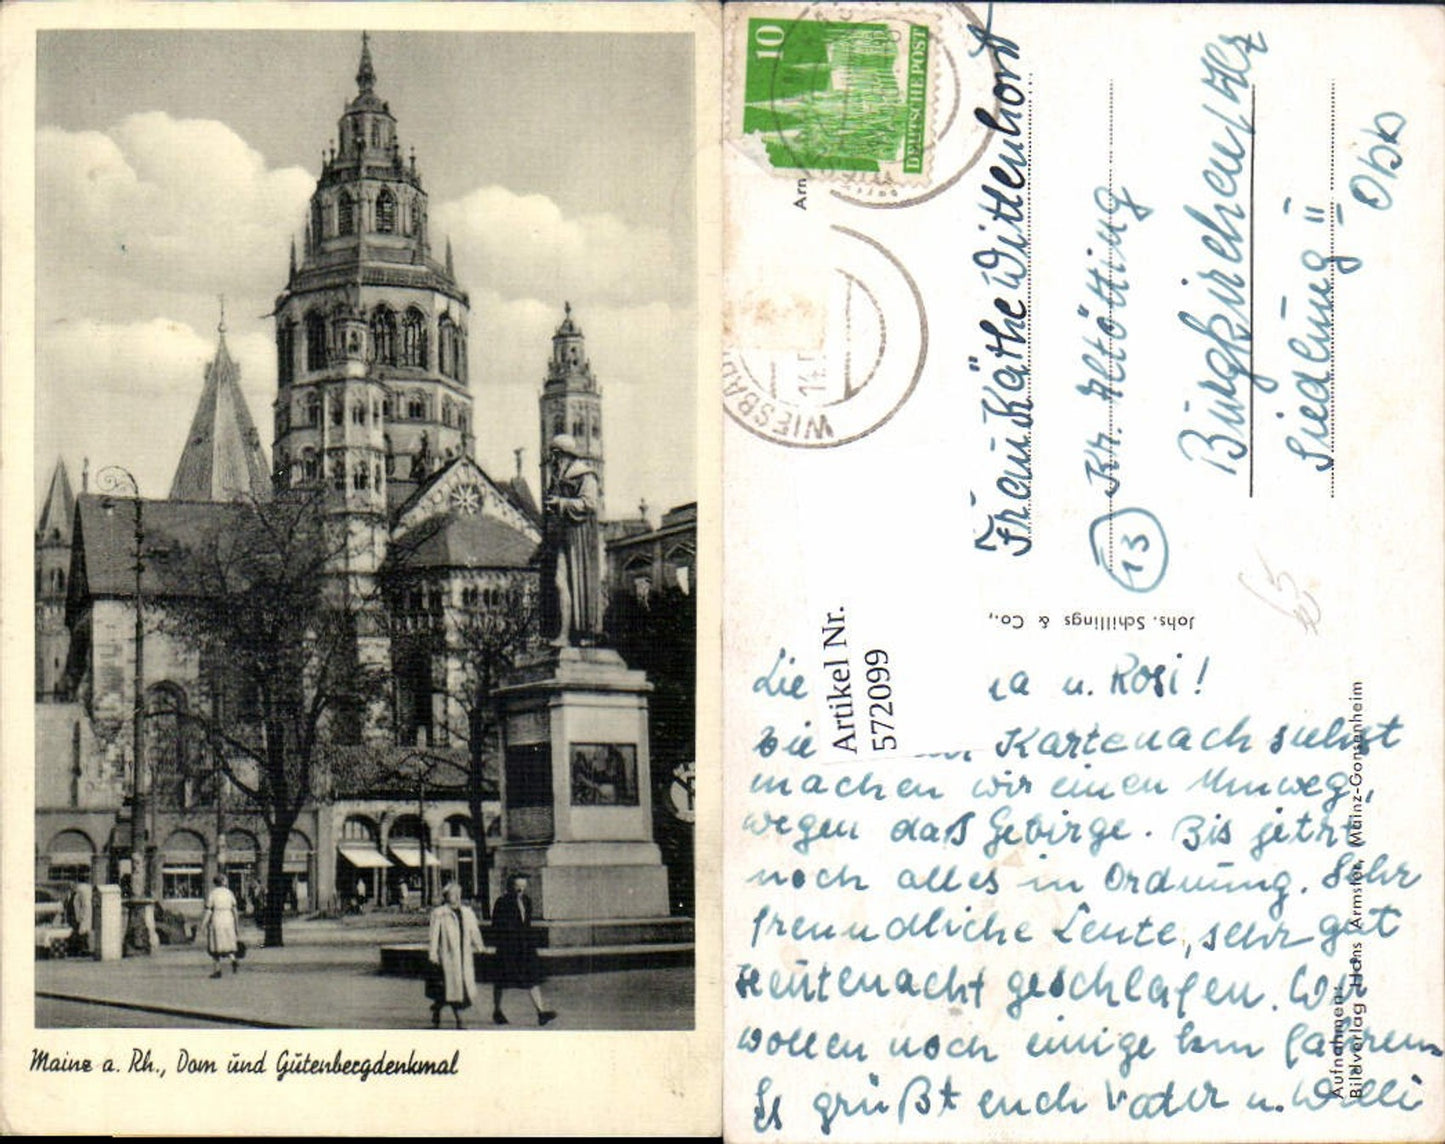 Mainz a. Rh., Dom und Gutenbergdenkmal
10
DEUTSCHE POST
WIESBAD
14.
Arn
Frau Käthe Wittenhorst
(13) Kr. Altötting
Burgkirchen/Alz
Siedlung II
Obb
Artikel Nr.
572099
Johs. Schillings & Co.,
Aufnahmen:
Bildverlag Hans Armster, Mainz-Gonsenheim
Lie a u. Rosi!
Wie Karte nach sieht
machen wir einen Umweg,
wegen daß Gebirge. Bis jetzt
noch alles in Ordnung. Sehr
freundliche Leute, sehr gut
Heutenacht geschlafen. Wir
wollen noch einige km fahren
Es grüßt euch Vater u. Willi